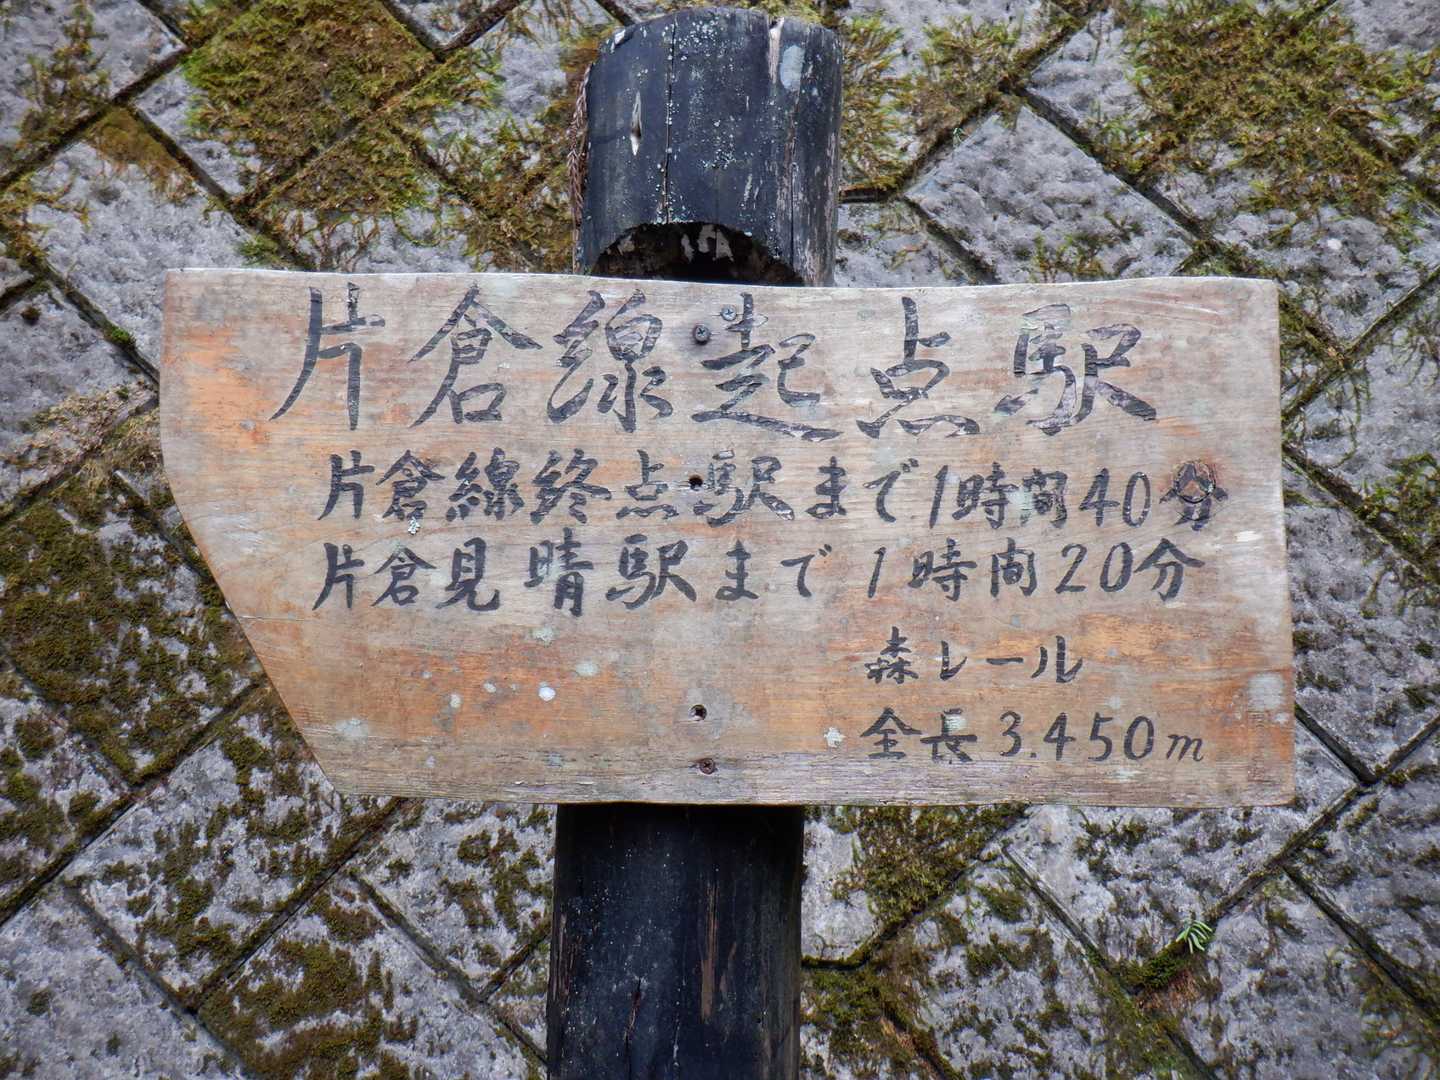 片倉線起点駅
片倉線終点駅まで1時間40分
片倉見晴駅まで1時間20分
森レール
全長3.450m